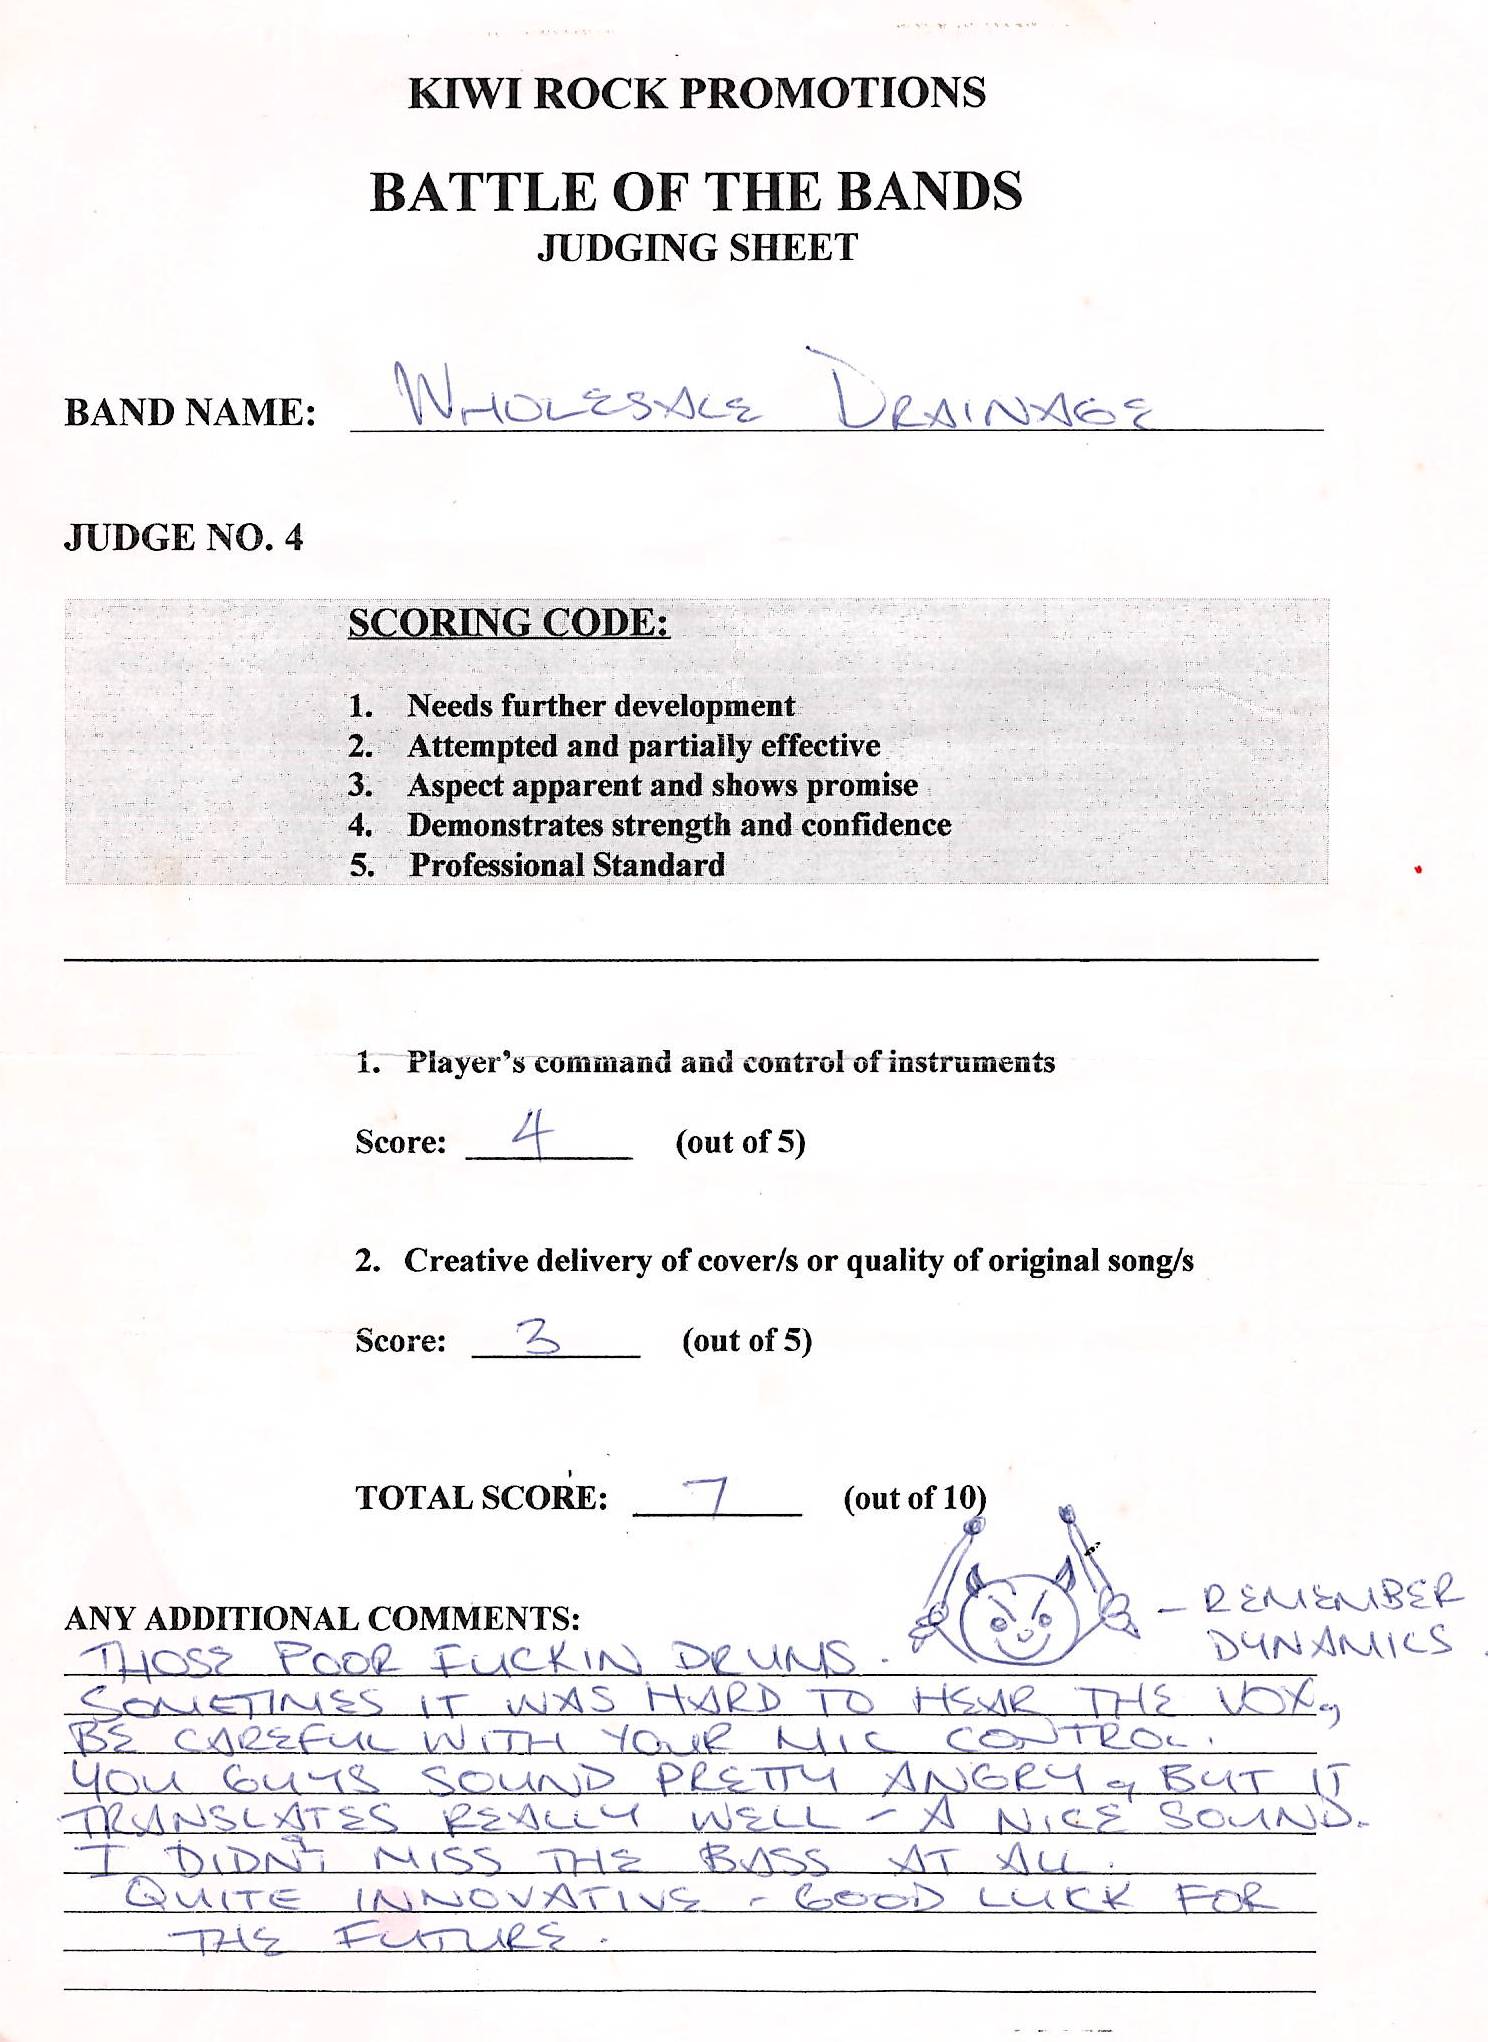 KIWI ROCK PROMOTIONS
BATTLE OF THE BANDS
JUDGING SHEET
BAND NAME: WHOLESALE DRAINAGE
JUDGE NO. 4
SCORING CODE:
1. Needs further development
2. Attempted and partially effective
3. Aspect apparent and shows promise
4. Demonstrates strength and confidence
5. Professional Standard
1. Player's command and control of instruments
Score: 4 (out of 5)
2. Creative delivery of cover/s or quality of original song/s
Score: 3 (out of 5)
TOTAL SCORE: 7 (out of 10)
ANY ADDITIONAL COMMENTS:
- REMEMBER
DYNAMICS.
THOSE POOR FUCKIN DRUMS.
SOMETIMES IT WAS HARD TO HEAR THE VOX,
BE CAREFUL WITH YOUR MIC CONTROL.
YOU GUYS SOUND PRETTY ANGRY, BUT IT
TRANSLATES REALLY WELL - A NICE SOUND.
I DIDN'T MISS THE BASS AT ALL.
QUITE INNOVATIVE - GOOD LUCK FOR
THE FUTURE.